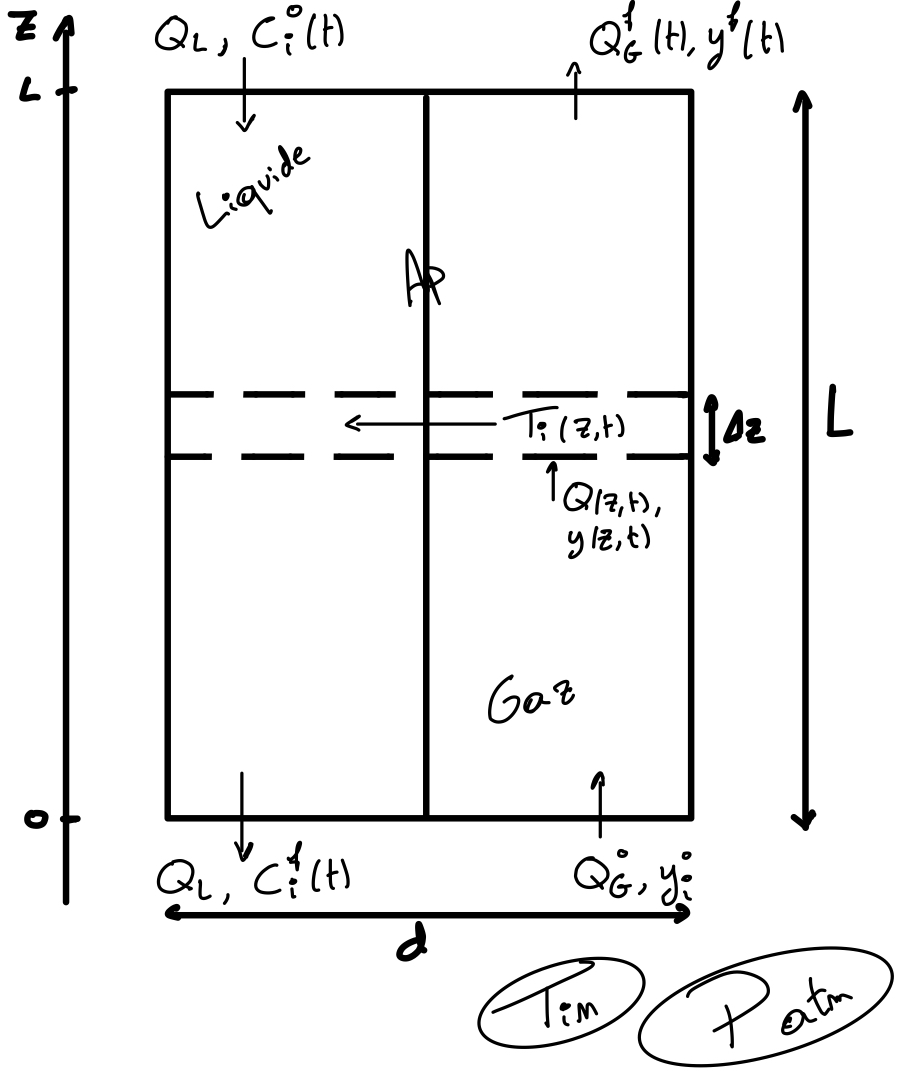 Z
L
Q_L, C_i^o(t)
Q_G^f(t), y^f(t)
Liquide
AP
T_i(z,t)
Δz
L
Q(z,t),
y(z,t)
Gaz
0
Q_L, C_i^f(t)
Q_G^o, y_i^o
d
Tin
P atm